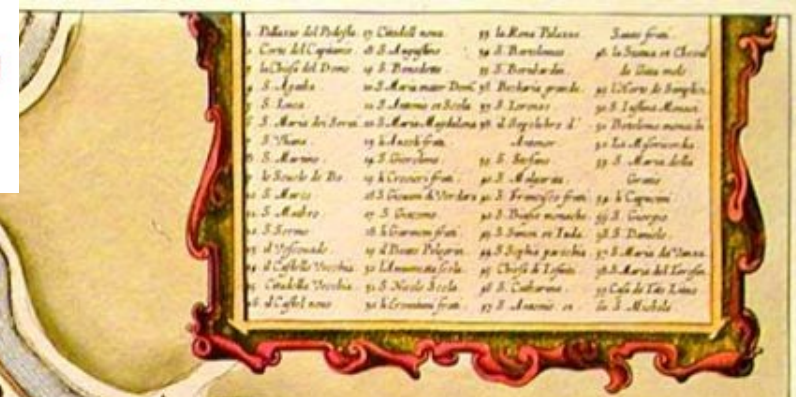 1 Pallazzo del Podesta.
2 Corte del Capitanio.
3 la Chiesa del Domo.
4 S. Agatha
5 S. Lucca
6 S. Maria dei Servi.
7 S. Uliana.
8 S. Martino.
9 le Scuole de Bo
10 S. Marco
11 S. Matheo.
12 S. Fermo
13 il Vescouado.
14 il Castello Vecchia
15 Citadella Vecchia
16 il Castel nouo
17 Citadell noua.
18 S. Augustino.
19 S. Benedetto.
20 S. Maria mater Dom.
21 S. Antonio et Scola
22 S. Maria Magdalena
23 frati.
24 S. Gierolimo.
25 li Crosieri frati.
26 S. Giouani di Verdara
27 S. Giacomo.
28 li Carmini frati.
29 il Beato Pelegrin.
30 l'Annunciata scola.
31 S. Nicolo Scola.
32 li Eremitani frati.
33 la Rena Palazzo
34 S. Bartolomeo
35 S. Bernhardin.
36 Becharia grande.
37 S. Lorenzo
38 il Sepolchro d'
Antenor
39 S. Stefano
40 S. Malgarita
41 S. Francesco frati
42 S. Biasio monache
43 S. Simon et Iuda.
44 S. Sophia parochia
45 Chiesa di
46 S. Catharina
47 S. Antonio et
frati
48 la Statua et Cheual
de Gata mela
50 S. Iustina Monaci.
51 monachi
52 La Misericordia
53 S. Maria delle
Gratie
54 li Capucini
55 S. Giorgio
56 S. Daniele
57 S. Maria de Vanzo
58 S. Maria del
59 Casa de Tito Liuio
60 S. Michele